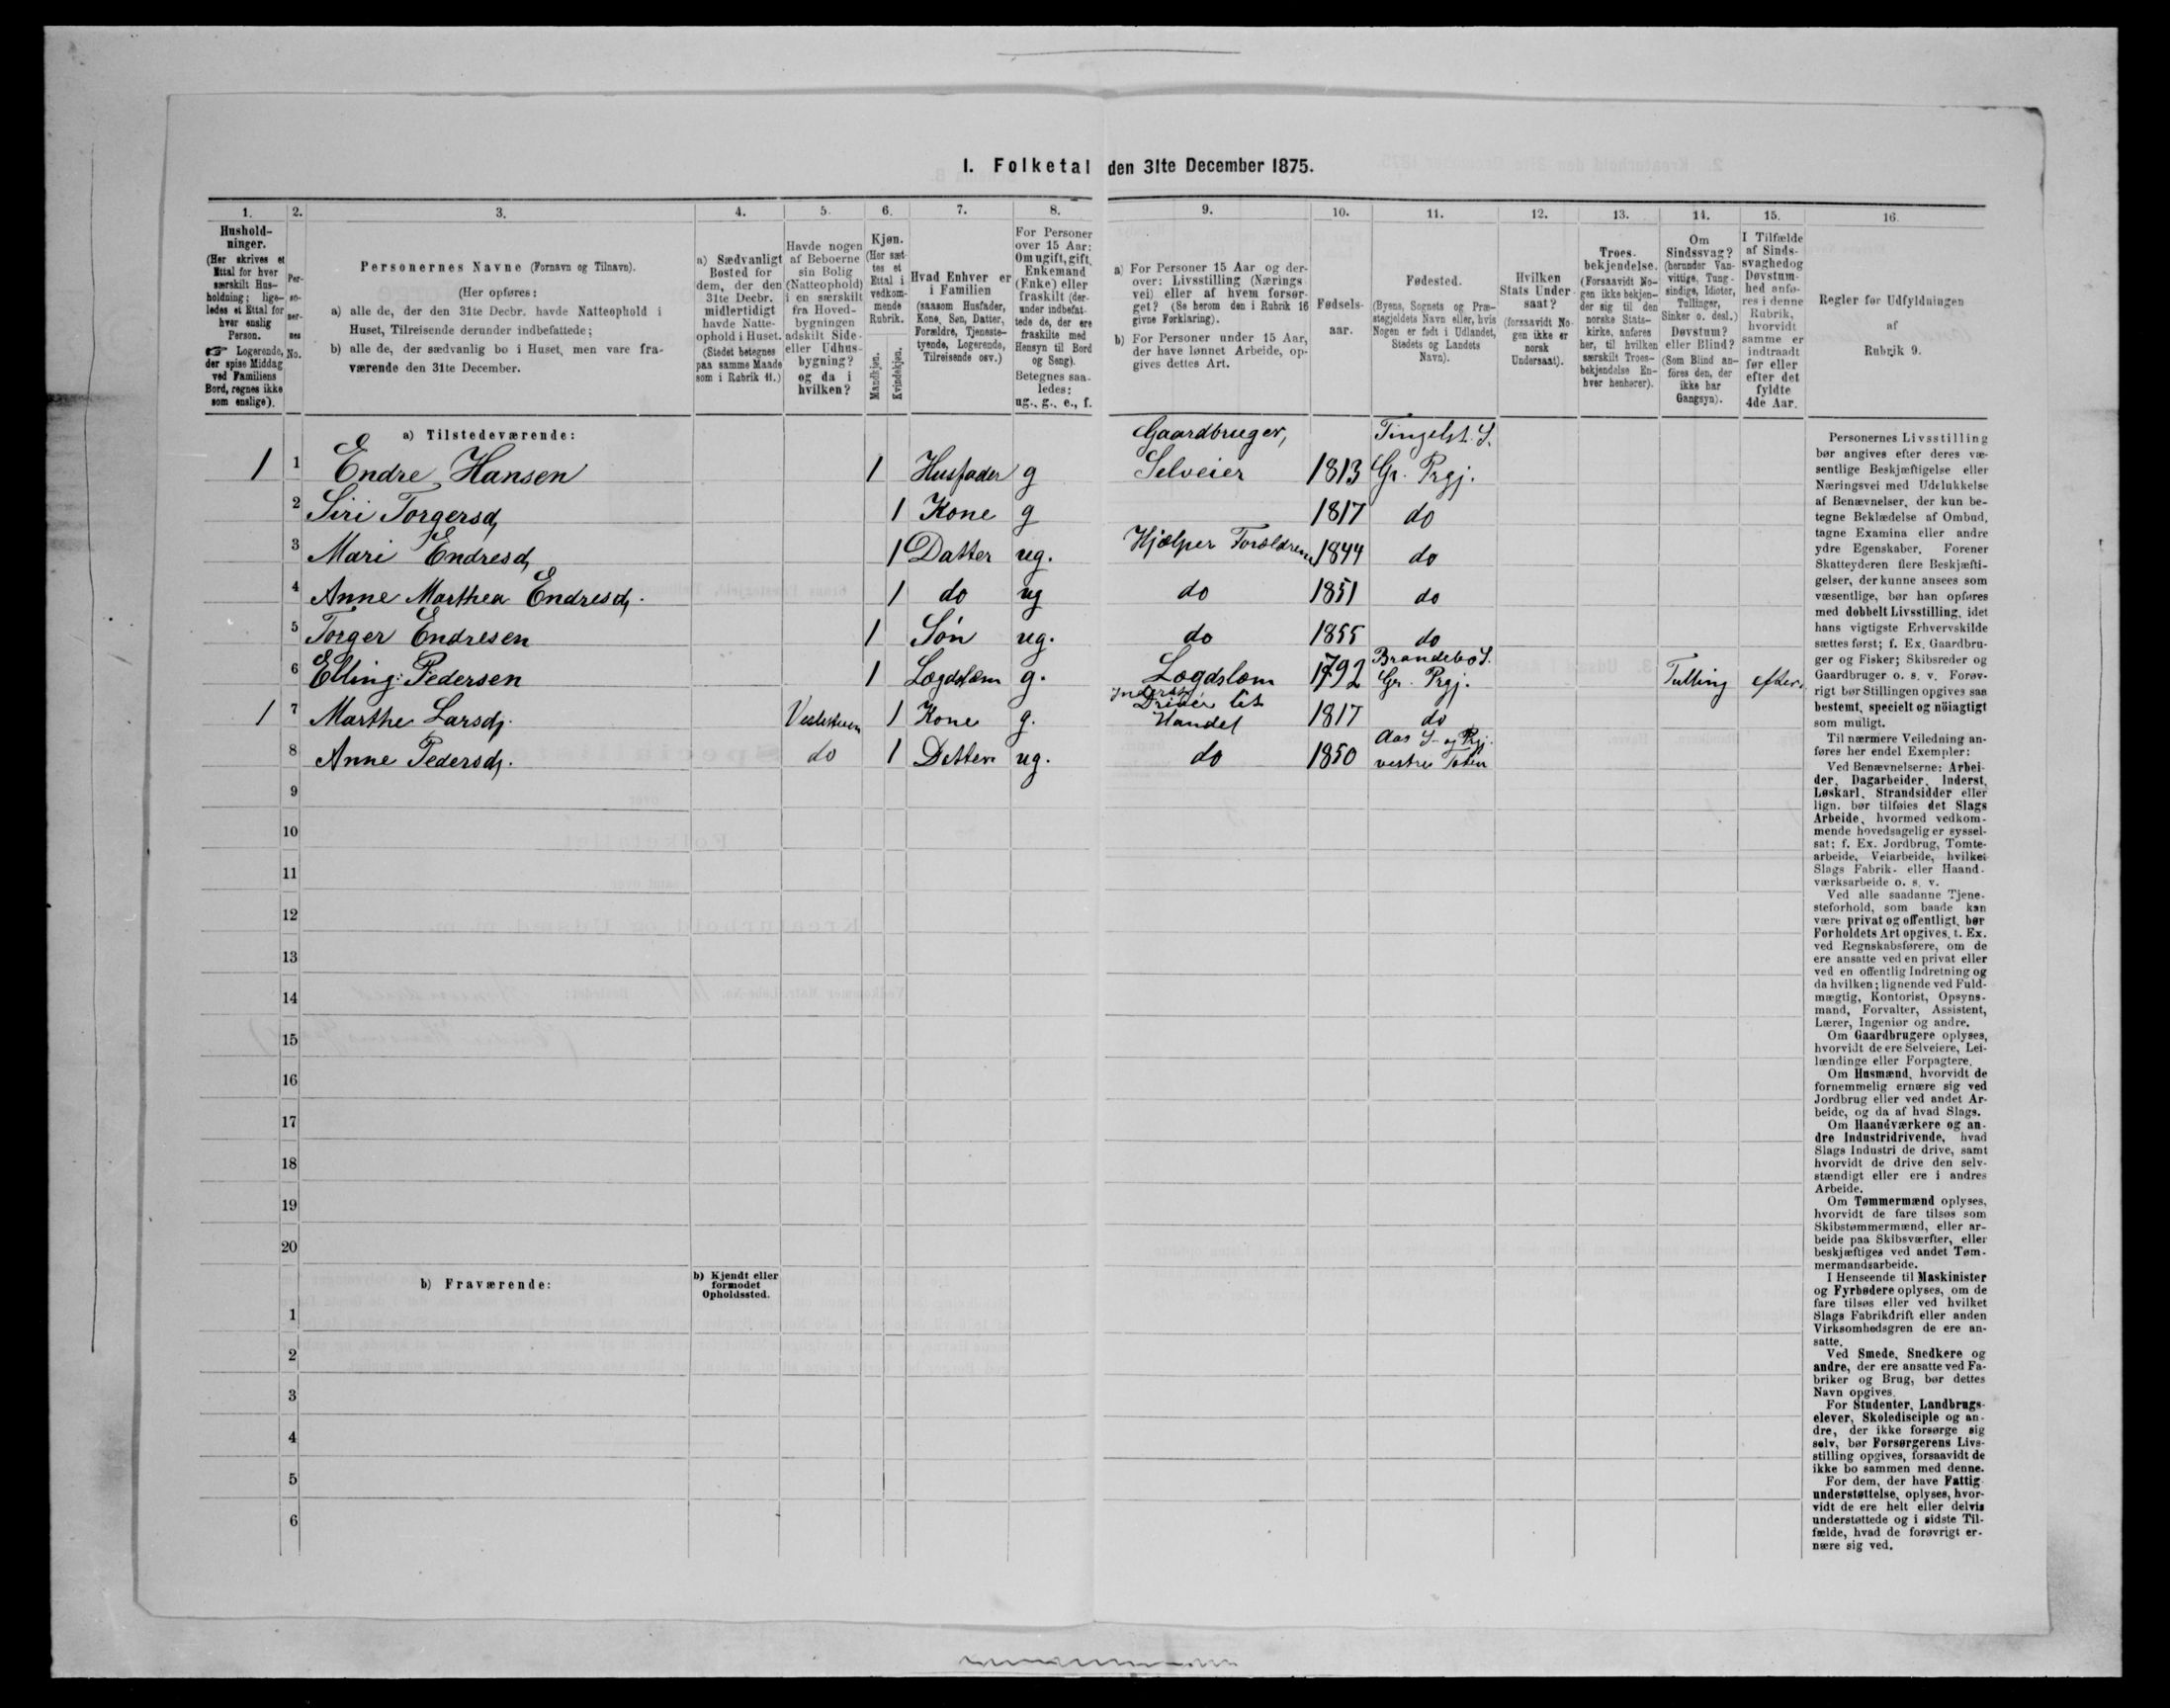 I. Folketal den 31te December 1875.
1. 2. 3. 4. 5. 6. 7. 8. 9. 10. 11. 12. 13. 14. 15. 16.
Hushold-
ninger.
(Her skrives et
Ettal for hver
særskilt Hus-
holdning; lige-
ledes et Ettal for
hver enslig
Person.
☞ Logerende,
der spise Middag
ved Familiens
Bord, regnes ikke
som enslige).
Per-
so-
ner-
nes
No.
Personernes Navne (Fornavn og Tilnavn).
(Her opføres:
a) alle de, der den 31te Decbr. havde Natteophold i
Huset, Tilreisende derunder indbefattede;
b) alle de, der sædvanlig bo i Huset, men vare fra-
værende den 31te December.
a) Sædvanligt
Bosted for
dem, der den
31te Decbr.
midlertidigt
havde Natte-
ophold i Huset.
(Stedet betegnes
paa samme Maade
som i Rubrik 11.)
Havde nogen
af Beboerne
sin Bolig
(Natteophold)
i en særskilt
fra Hoved-
bygningen
adskilt Side-
eller Udhus-
bygning?
og da i
hvilken?
Kjøn.
(Her sæt-
tes et
Ettal i
vedkom-
mende
Rubrik.
Mandkjøn.
Kvindekjøn.
Hvad Enhver er
i Familien
(saasom Husfader,
Kone, Søn, Datter,
Forældre, Tjeneste-
tyende, Logerende,
Tilreisende osv.)
For Personer
over 15 Aar:
Om ugift, gift,
Enkemand
(Enke) eller
fraskilt (der-
under indbefat-
tede de, der ere
fraskilte med
Hensyn til Bord
og Seng).
Betegnes saa-
ledes:
ug., g., e., f.
a) For Personer 15 Aar og der-
over: Livsstilling (Nærings
vei) eller af hvem forsør-
get? (Se herom den i Rubrik 16
givne Forklaring).
b) For Personer under 15 Aar,
der have lønnet Arbeide, op-
gives dettes Art.
Fødsels-
aar.
Fødested.
(Byens, Sognets og Præ-
stegjeldets Navn eller, hvis
Nogen er født i Udlandet,
Stedets og Landets
Navn).
Hvilken
Stats Under-
saat?
(forsaavidt No-
gen ikke er
norsk
Undersaat).
Troes-
bekjendelse.
(Forsaavidt No-
gen ikke bekjen-
der sig til den
norske Stats-
kirke, anføres
her, til hvilken
særskilt Troes-
bekjendelse En-
hver henhører).
Om
Sindssvag?
(herunder Van-
vittige, Tung-
sindige, Idioter,
Tullinger,
Sinker o. desl.)
Døvstum?
eller Blind?
(Som Blind an-
føres den, der
ikke har
Gangsyn).
I Tilfælde
af Sinds-
svaghed og
Døvstum-
hed anfø-
res i denne
Rubrik,
hvorvidt
samme er
indtraadt
før eller
efter det
fyldte
4de Aar.
Regler før Udfyldningen
af
Rubrik 9.
a) Tilstedeværende:
1 1 Endre Hansen 1 Husfader g Gaardbruger, Selveier 1813 Tingelst. S. Gr. Prgj.
2 Siri Torgersd. 1 Kone g 1817 do
3 Mari Endresd. 1 Datter ug. Hjælper Forældrene 1844 do
4 Anne Marthea Endresd. 1 do ug do 1851 do
5 Torger Endresen 1 Søn ug. do 1855 do
6 Elling Pedersen 1 Lægdslem g. Lægdslem 1792 Brandebo S. Gr. Prgj. Tulling efter
1 7 Marthe Larsd. 1 Kone g. Inderst Driver lit Handel 1817 do
8 Anne Pedersd. do 1 Datter ug. do 1850 Aas S. og Prgj. vestre Toten
9
10
11
12
13
14
15
16
17
18
19
20
b) Fraværende:
b) Kjendt eller
formodet
Opholdssted.
1
2
3
4
5
6
Personernes Livsstilling
bør angives efter deres væ-
sentlige Beskjæftigelse eller
Næringsvei med Udelukkelse
af Benævnelser, der kun be-
tegne Beklædelse af Ombud,
tagne Examina eller andre
ydre Egenskaber. Forener
Skatteyderen flere Beskjæfti-
gelser, der kunne ansees som
væsentlige, bør han opføres
med dobbelt Livsstilling, idet
hans vigtigste Erhvervskilde
sættes først; f. Ex. Gaardbru-
ger og Fisker; Skibsreder og
Gaardbruger o. s. v. Forøv-
rigt bør Stillingen opgives saa
bestemt, specielt og nöiagtigt
som muligt.
Til nærmere Veiledning an-
føres her endel Exempler:
Ved Benævnelserne: Arbei-
der, Dagarbeider, Inderst,
Løskarl, Strandsidder eller
lign. bør tilføies det Slags
Arbeide, hvormed vedkom-
mende hovedsagelig er syssel-
sat; f. Ex. Jordbrug, Tomte-
arbeide, Veiarbeide, hvilket
Slags Fabrik- eller Haand-
værksarbeide o. s. v.
Ved alle saadanne Tjene-
steforhold, som baade kan
være privat og offentligt, bør
Forholdets Art opgives, t. Ex.
ved Regnskabsførere, om de
ere ansatte ved en privat eller
ved en offentlig Indretning og
da hvilken; lignende ved Fuld-
mægtig, Kontorist, Opsyns-
mand, Forvalter, Assistent,
Lærer, Ingeniør og andre.
Om Gaardbrugere oplyses,
hvorvidt de ere Selveiere, Lei-
lændinge eller Forpagtere.
Om Husmænd, hvorvidt de
fornemmelig ernære sig ved
Jordbrug eller ved andet Ar-
beide, og da af hvad Slags.
Om Haandværkere og an-
dre Industridrivende, hvad
Slags Industri de drive, samt
hvorvidt de drive den selv-
stændigt eller ere i andres
Arbeide.
Om Tømmermænd oplyses,
hvorvidt de fare tilsøs som
Skibstømmermænd, eller ar-
beide paa Skibsværfter, eller
beskjæftiges ved andet Tøm-
mermandsarbeide.
I Henseende til Maskinister
og Fyrbødere oplyses, om de
fare tilsøs eller ved hvilket
Slags Fabrikdrift eller anden
Virksomhedsgren de ere an-
satte.
Ved Smede, Snedkere og
andre, der ere ansatte ved Fa-
briker og Brug, bør dettes
Navn opgives.
For Studenter, Landbrugs-
elever, Skoledisciple og an-
dre, der ikke forsørge sig
selv, bør Forsørgerens Livs-
stilling opgives, forsaavidt de
ikke bo sammen med denne.
For dem, der have Fattig-
understøttelse, oplyses, hvor-
vidt de ere helt eller delvis
understøttede og i sidste Til-
fælde, hvad de forøvrigt er-
nære sig ved.